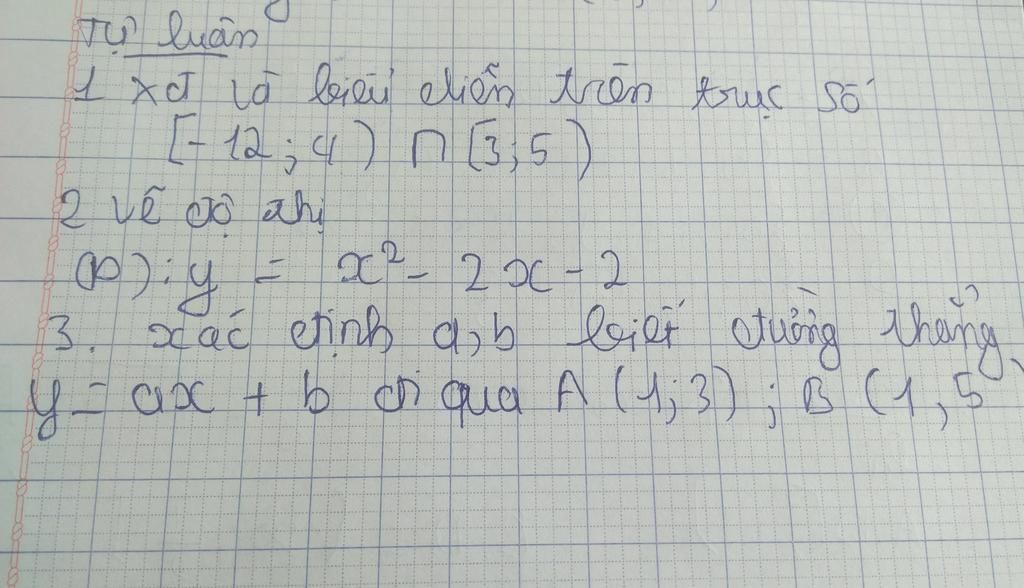 Tự luận
1 xđ và biểu diễn trên trục số
[-12; 4) ∩ [3; 5)
2 vẽ đồ thị
(P): y = x² - 2x - 2
3. xác định a, b biết đường thẳng
y = ax + b đi qua A (1; 3); B (1, 5